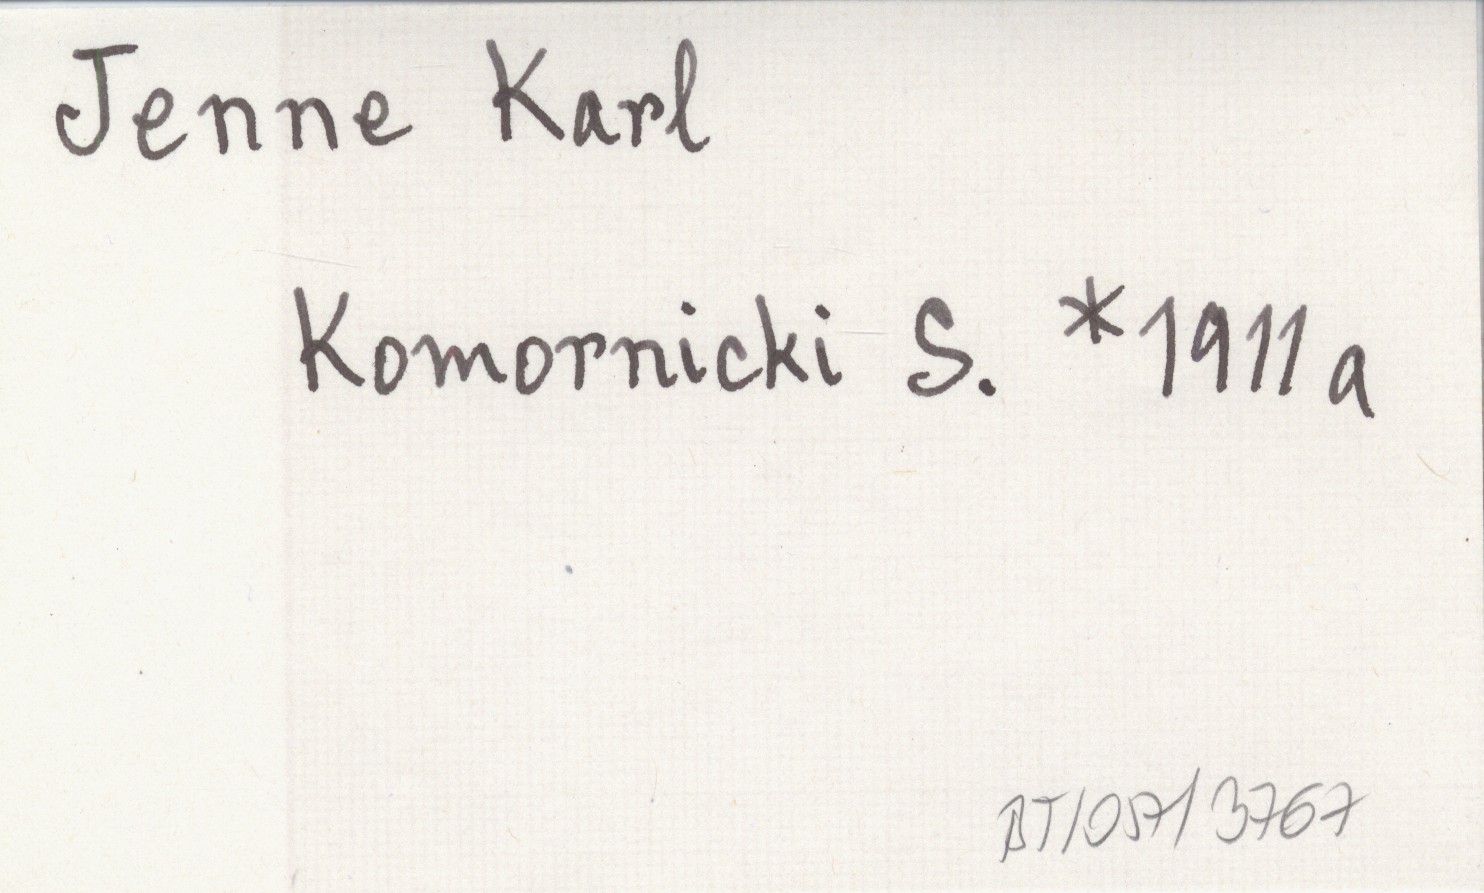 Jenne Karl
Komornicki S. *1911a
BT/057/3767